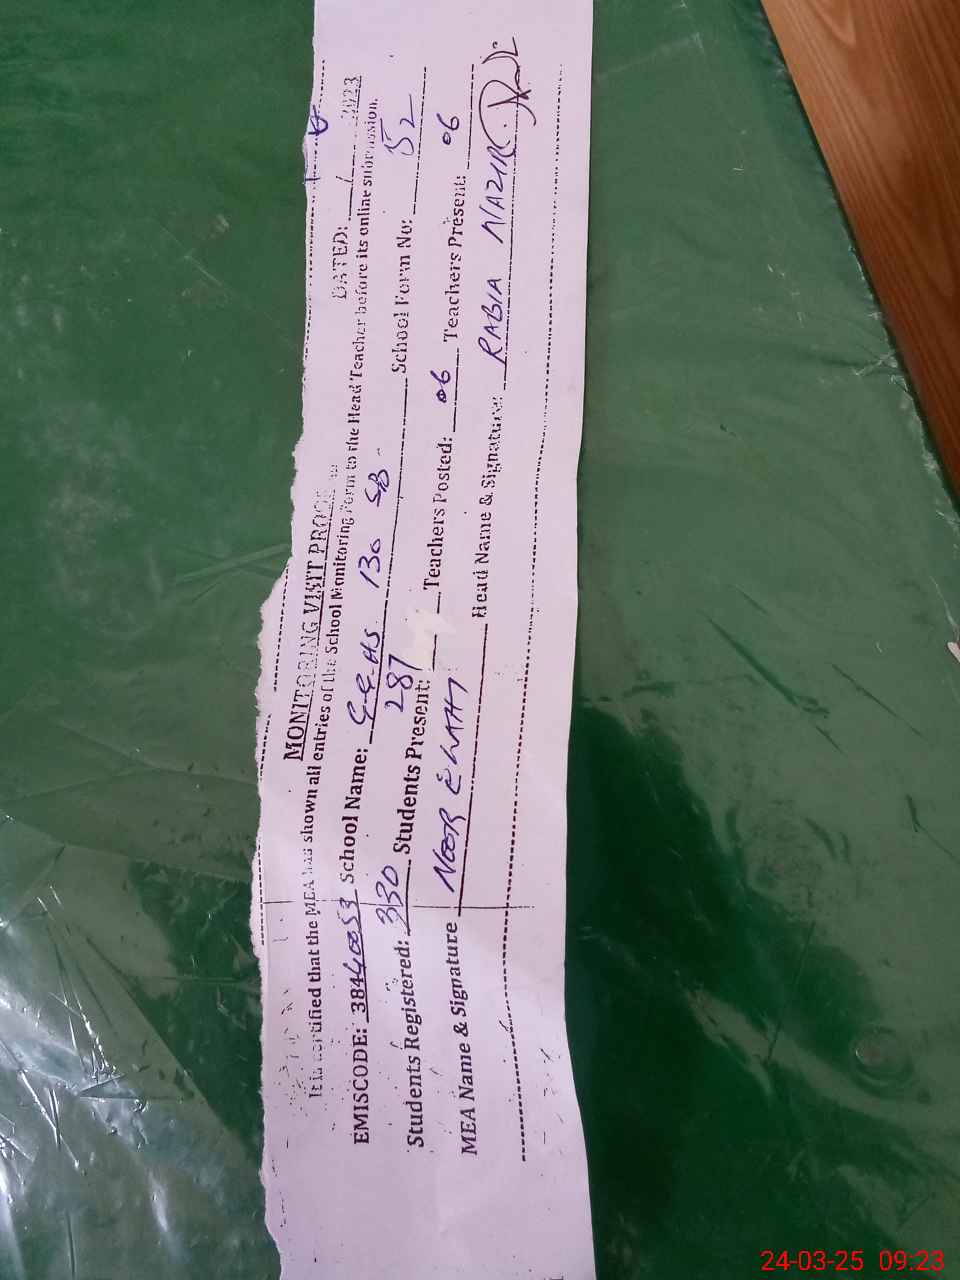 MONITORING VISIT PROOF
DATED: / 2023
It is certified that the MEA has shown all entries of the School Monitoring Form to the Head Teacher before its online submission.
EMISCODE: 38440053 School Name: G.G.HS 130 SB School Form No: 52
Students Registered: 330 Students Present: 287 Teachers Posted: 06 Teachers Present: 06
MEA Name & Signature NOOR ELAHI Head Name & Signature: RABIA NAZIR
24-03-25 09:23